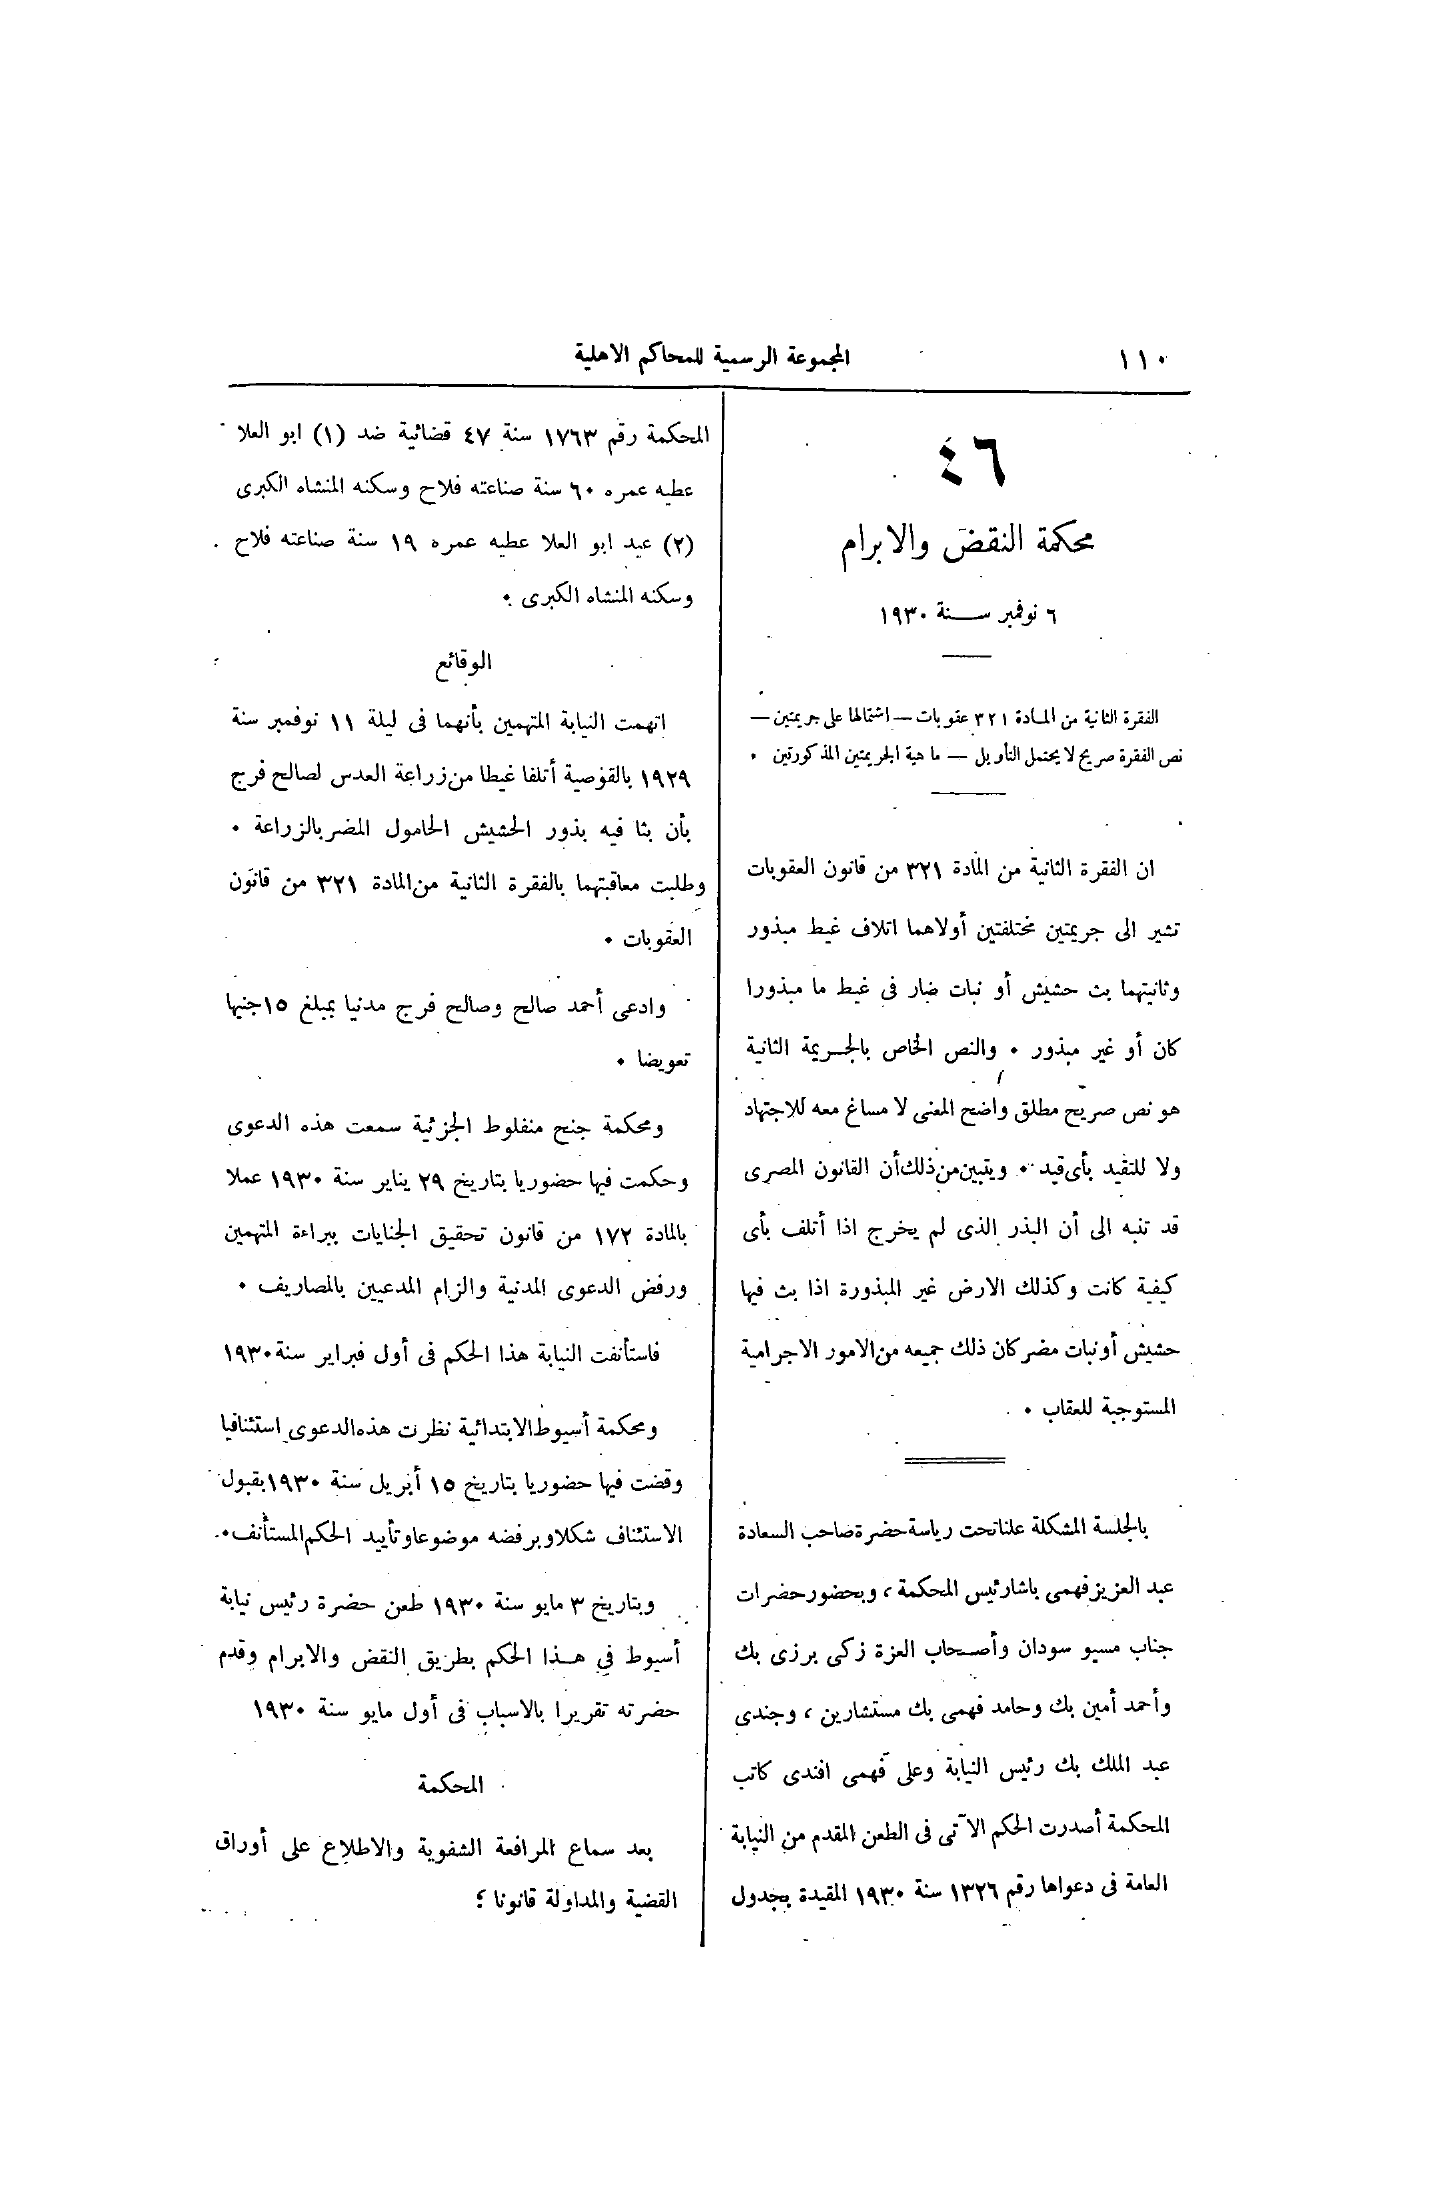 ١١٠
المجموعة الرسمية للمحاكم الاهلية
٤٦
محكمة النقض والابرام
٦ نوفمبر سنة ١٩٣٠
الفقرة الثانية من المادة ٣٢١ عقوبات — اشتمالها على جريمتين —
نص الفقرة صريح لا يحتمل التأويل — ماهية الجريمتين المذكورتين .
ان الفقرة الثانية من المادة ٣٢١ من قانون العقوبات
تشير الى جريمتين مختلفتين أولاهما اتلاف غيط مبذور
وثانيتهما بث حشيش أو نبات ضار فى غيط ما مبذورا
كان أو غير مبذور . والنص الخاص بالجريمة الثانية
هو نص صريح مطلق واضح المعنى لا مساغ معه للاجتهاد
ولا للتقيد بأى قيد . ويتبين من ذلك أن القانون المصرى
قد تنبه الى أن البذر الذى لم يخرج اذا أتلف بأى
كيفية كانت وكذلك الارض غير المبذورة اذا بث فيها
حشيش أو نبات مضر كان ذلك جميعه من الامور الاجرامية
المستوجبة للعقاب .
بالجلسة المشكلة علنا تحت رياسة حضرة صاحب السعادة
عبد العزيز فهمى باشا رئيس المحكمة ، وبحضور حضرات
جناب مسيو سودان وأصحاب العزة زكى برزى بك
وأحمد أمين بك وحامد فهمى بك مستشارين ، وجندى
عبد الملك بك رئيس النيابة وعلى فهمى افندى كاتب
المحكمة أصدرت الحكم الآتى فى الطعن المقدم من النيابة
العامة فى دعواها رقم ١٣٢٦ سنة ١٩٣٠ المقيدة بجدول
المحكمة رقم ١٧٦٣ سنة ٤٧ قضائية ضد (١) ابو العلا
عطيه عمره ٦٠ سنة صناعته فلاح وسكنه المنشاه الكبرى
(٢) عبد ابو العلا عطيه عمره ١٩ سنة صناعته فلاح
وسكنه المنشاه الكبرى .
الوقائع
اتهمت النيابة المتهمين بأنهما فى ليلة ١١ نوفمبر سنة
١٩٢٩ بالقوصية أتلفا غيطا من زراعة العدس لصالح فرج
بأن بثا فيه بذور الحشيش الحامول المضر بالزراعة .
وطلبت معاقبتهما بالفقرة الثانية من المادة ٣٢١ من قانون
العقوبات .
وادعى أحمد صالح وصالح فرج مدنيا بمبلغ ١٥ جنيها
تعويضا .
ومحكمة جنح منفلوط الجزئية سمعت هذه الدعوى
وحكمت فيها حضوريا بتاريخ ٢٩ يناير سنة ١٩٣٠ عملا
بالمادة ١٧٢ من قانون تحقيق الجنايات ببراءة المتهمين
ورفض الدعوى المدنية والزام المدعيين بالمصاريف .
فاستأنفت النيابة هذا الحكم فى أول فبراير سنة ١٩٣٠
ومحكمة أسيوط الابتدائية نظرت هذه الدعوى استئنافيا
وقضت فيها حضوريا بتاريخ ١٥ أبريل سنة ١٩٣٠ بقبول
الاستئناف شكلا وبرفضه موضوعا وتأييد الحكم المستأنف .
وبتاريخ ٣ مايو سنة ١٩٣٠ طعن حضرة رئيس نيابة
أسيوط فى هذا الحكم بطريق النقض والابرام وقدم
حضرته تقريرا بالاسباب فى أول مايو سنة ١٩٣٠
المحكمة
بعد سماع المرافعة الشفوية والاطلاع على أوراق
القضية والمداولة قانونا ؛